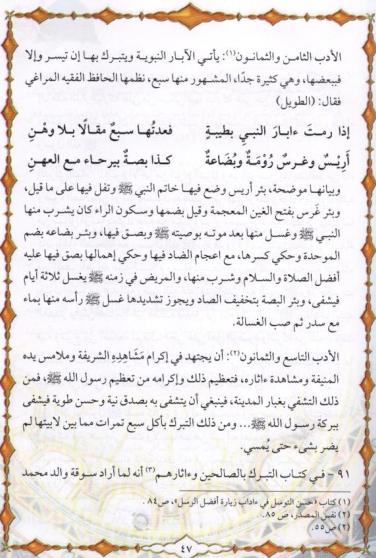 الأدب الثامن والثمانون(١): يأتي الآبار النبوية ويتبرك بها إن تيسر وإلا
فببعضها، وهي كثيرة جدًا، المشهور منها سبع، نظمها الحافظ الفقيه المراغي
فقال: (الطويل)
إذا رمتَ ءابارَ النبيِ بطيبةٍ فعدتُها سبعٌ مقالًا بلا وهْنِ
أَرِيْسٌ وغرسٌ رُوْمَةٌ وبُضَاعَةٌ كذا بصةٌ بيرحاء مع العهنِ
وبيانها موضحة، بئر أريس وضع فيها خاتم النبي ﷺ وتفل فيها على ما قيل،
وبئر غَرس بفتح الغين المعجمة وقيل بضمها وسكون الراء كان يشرب منها
النبي ﷺ وغسل منها بعد موته بوصيته ﷺ وبصق فيها، وبئر بضاعه بضم
الموحدة وحكي كسرها، مع اعجام الضاد فيها وحكي إهمالها بصق فيها عليه
أفضل الصلاة والسلام وشرب منها، والمريض في زمنه ﷺ يغسل ثلاثة أيام
فيشفى، وبئر البصة بتخفيف الصاد ويجوز تشديدها غسل ﷺ رأسه منها بماء
مع سدر ثم صب الغسالة.
الأدب التاسع والثمانون(٢): أن يجتهد في إكرام مَشَاهِدِهِ الشريفة وملامس يده
المنيفة ومشاهدة ءاثاره، فتعظيم ذلك وإكرامه من تعظيم رسول الله ﷺ، فمن
ذلك التشفي بغبار المدينة، فينبغي أن يتشفى به بصدق نية وحسن طوية فيشفى
ببركة رسول الله ﷺ... ومن ذلك التبرك بأكل سبع تمرات مما بين لابيتها لم
يضر بشىء حتى يُمسي.
٩١ - في كتاب التبرك بالصالحين وءاثارهم(٣) أنه لما أراد سوقة والد محمد
(١) كتاب «حسن التوسل في ءاداب زيارة أفضل الرسل»، ص٨٤.
(٢) نفس المصدر، ص ٨٥.
(٣) ص٥٥.
٤٧